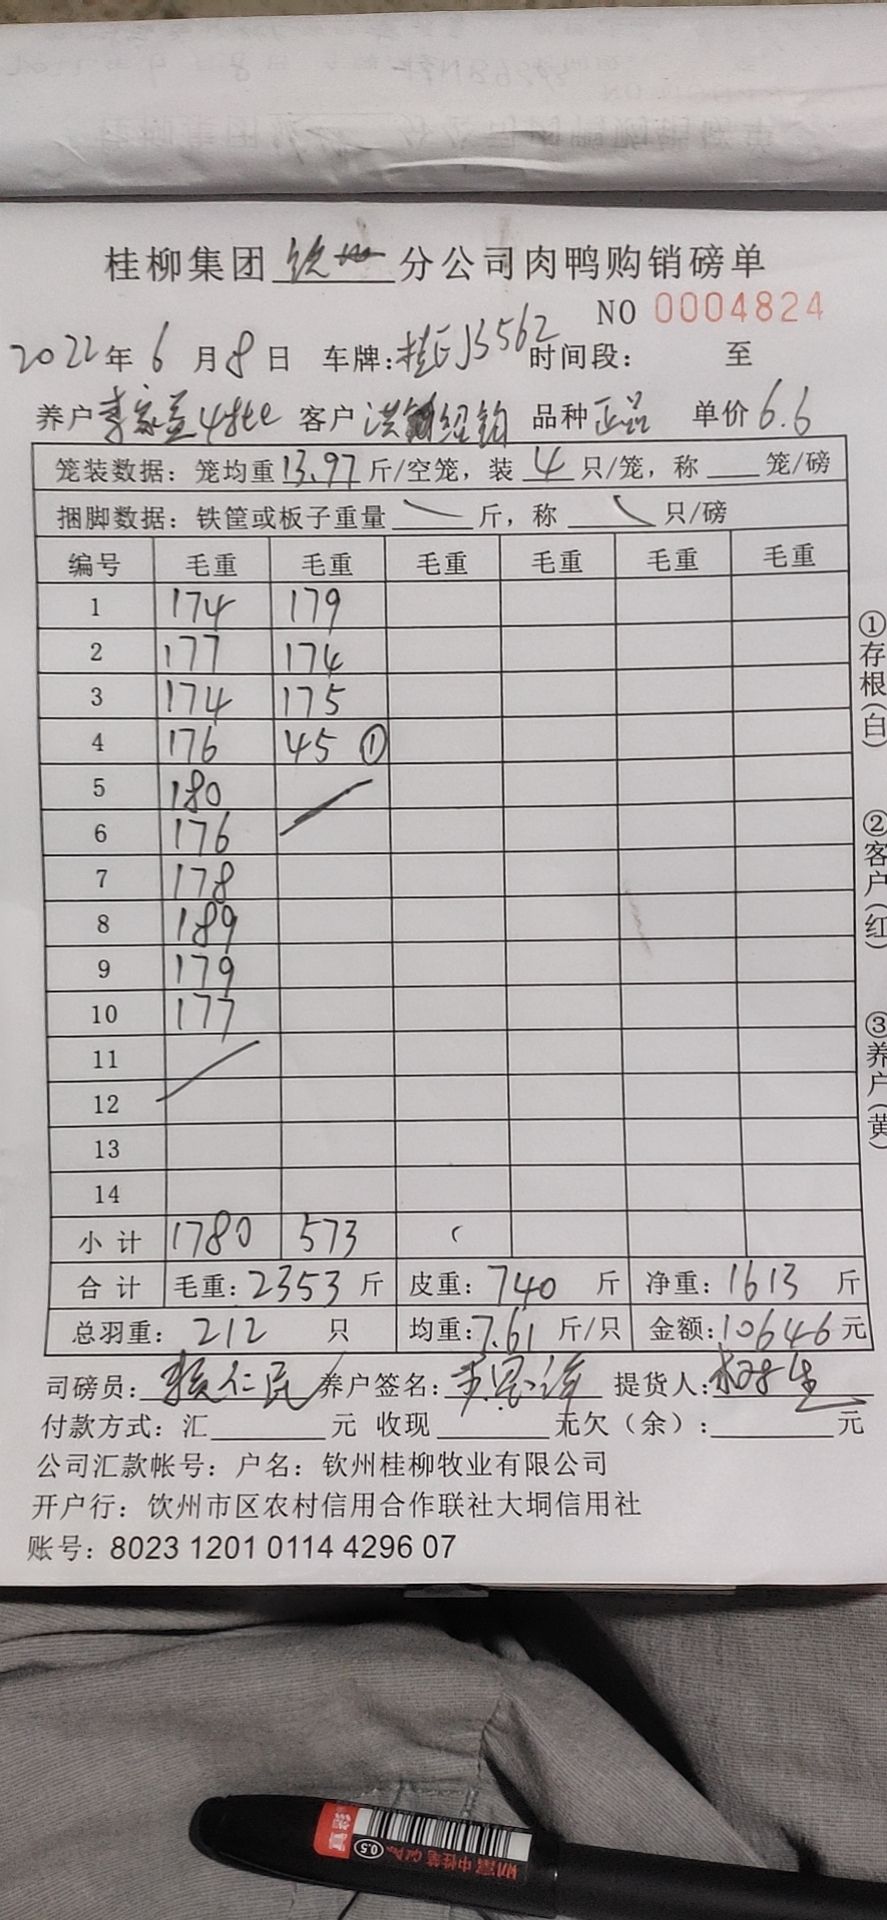 桂柳集团钦州分公司肉鸭购销磅单
NO 0004824
2022年6月8日 车牌:桂EJ3562 时间段: 至
养户 李家益 客户 洪 绍钧 品种 正品 单价 6.6
笼装数据: 笼均重 13.97 斤/空笼, 装 4 只/笼, 称 笼/磅
捆脚数据: 铁筐或板子重量 斤, 称 只/磅
编号 毛重 毛重 毛重 毛重 毛重 毛重
1 174 179
2 177 174
3 174 175
4 176 45 ①
5 180
6 176
7 178
8 189
9 179
10 177
11
12
13
14
小计 1780 573
合计 毛重: 2353 斤 皮重: 740 斤 净重: 1613 斤
总羽重: 212 只 均重: 7.61 斤/只 金额: 10646 元
司磅员: 赖仁民 养户签名: 提货人:
付款方式: 汇 元 收现 无欠(余): 元
公司汇款帐号: 户名: 钦州桂柳牧业有限公司
开户行: 饮州市区农村信用合作联社大垌信用社
账号: 8023 1201 0114 4296 07
①存根(白)
②客户(红)
③养户(黄)
0.5
中性笔 Gel Pen